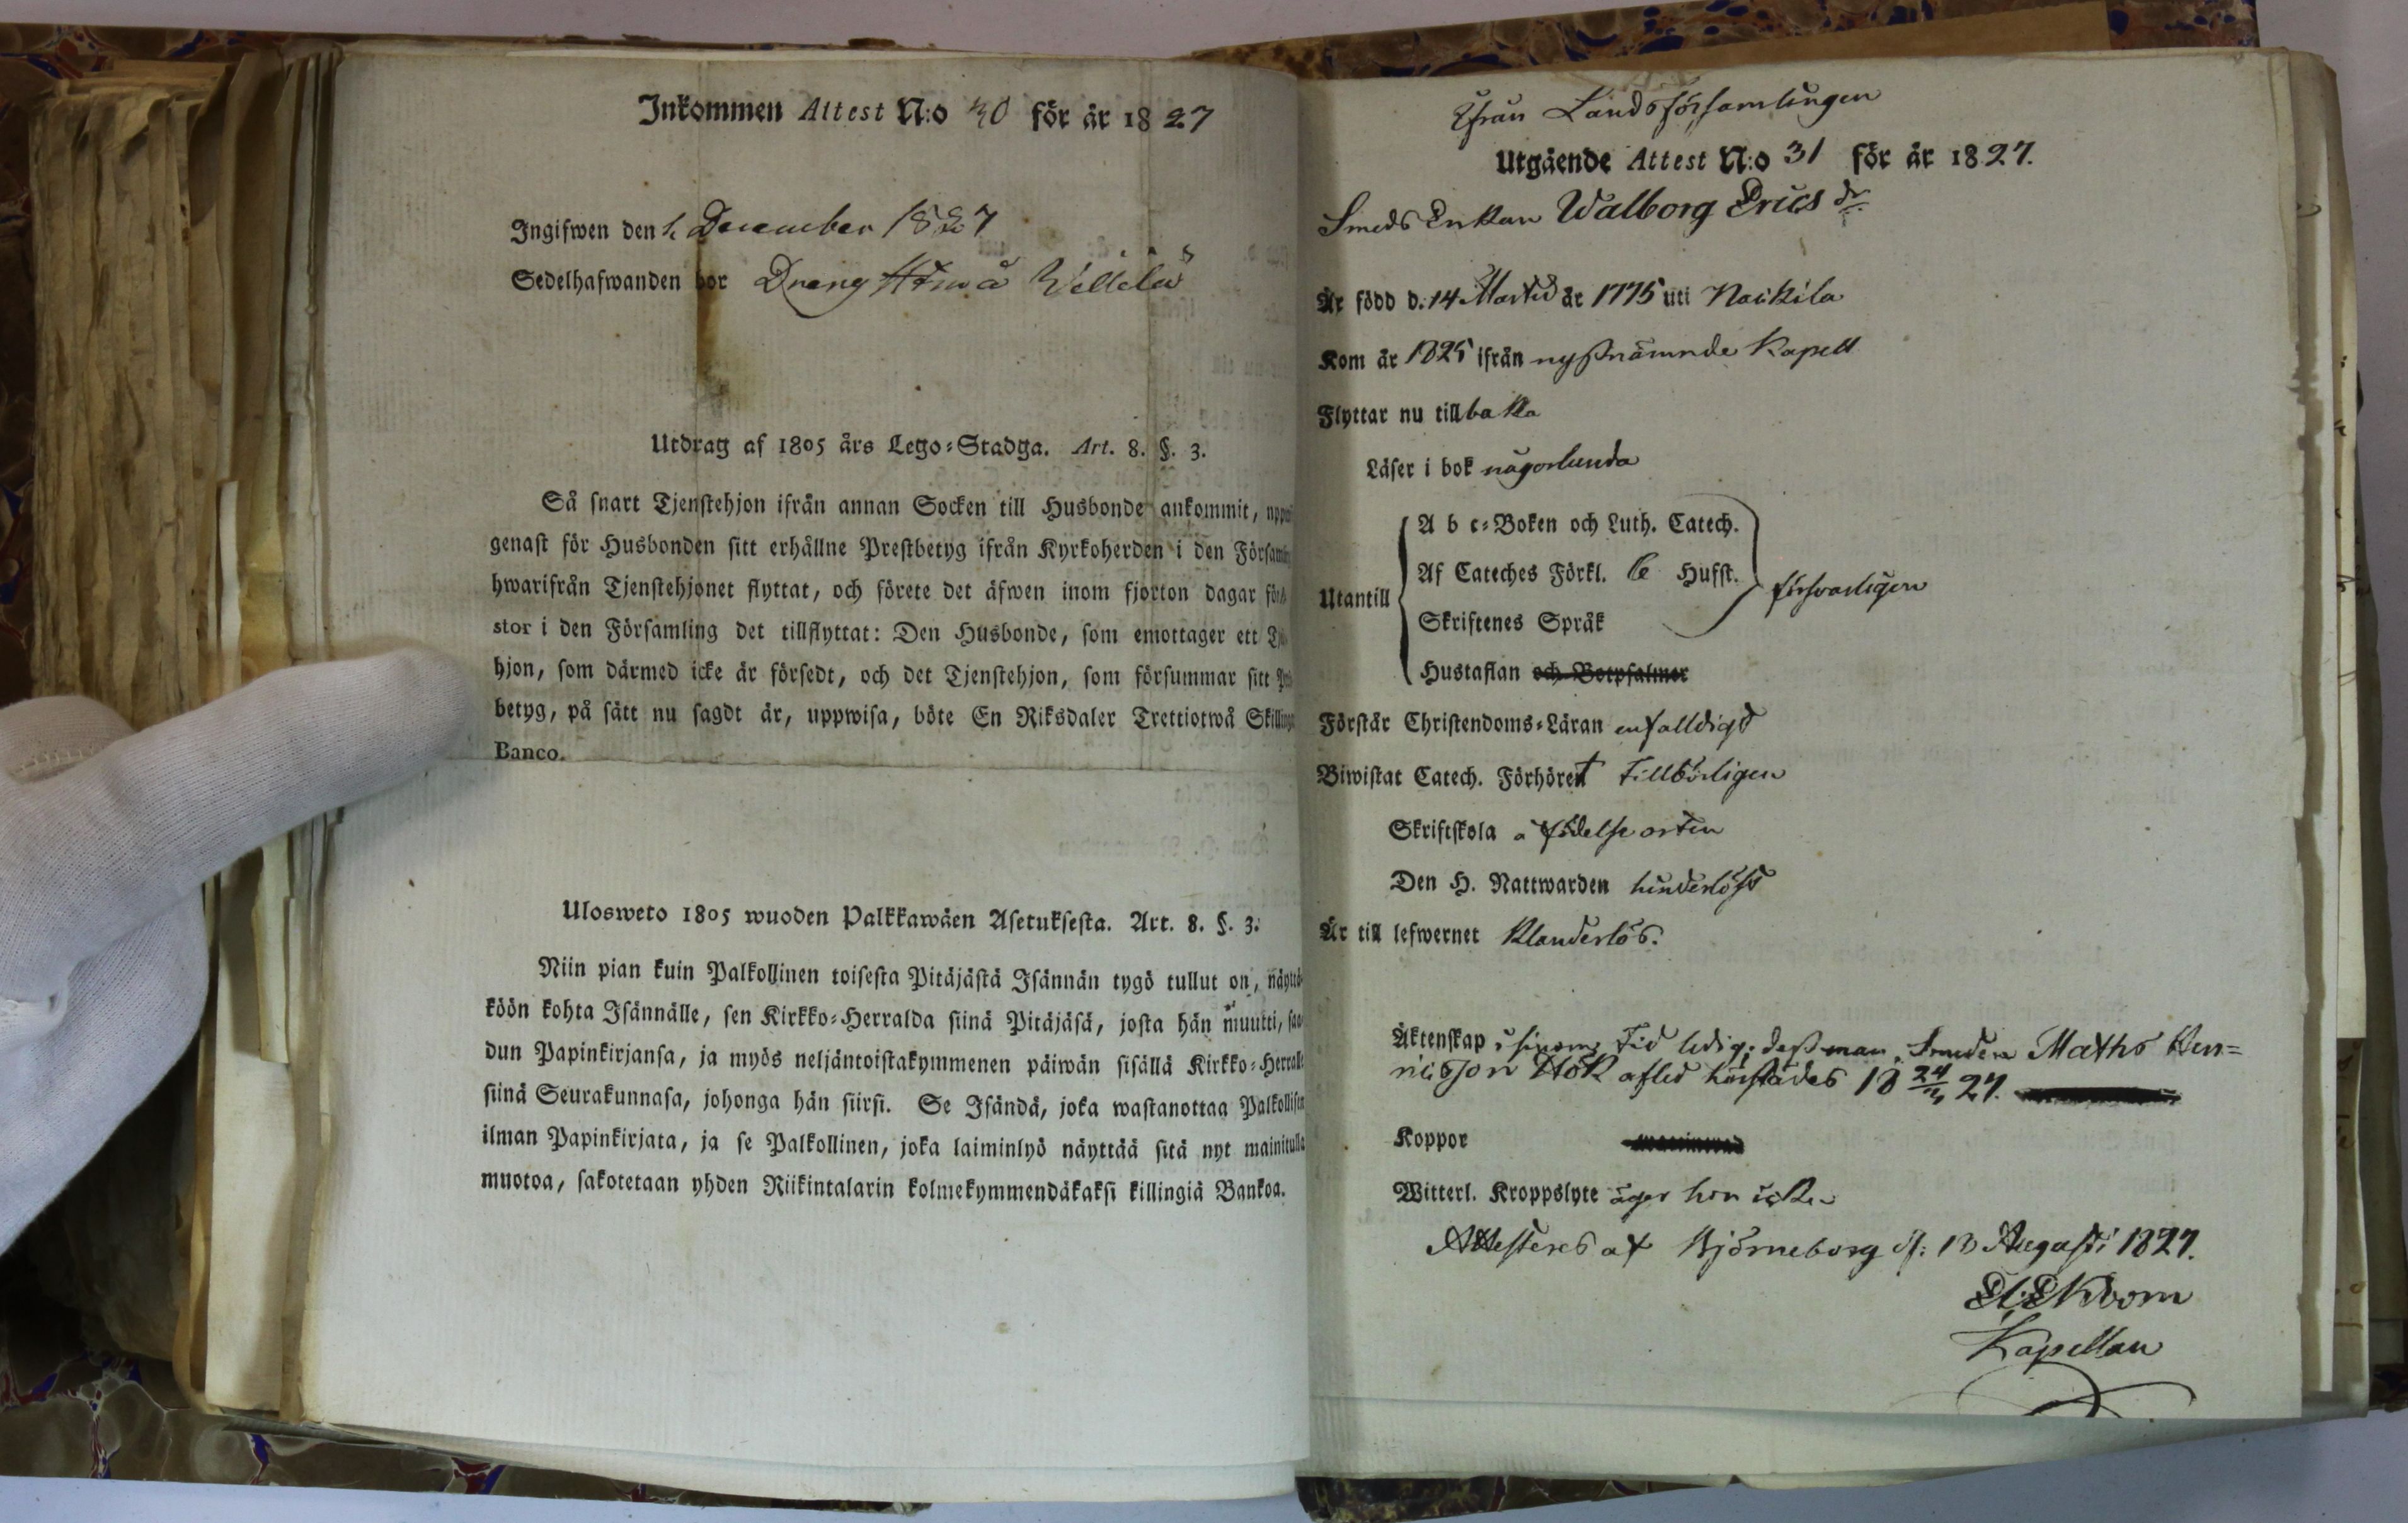 Inkommen Attest N:o 30 för år 1827
Ingifwen den 2 December 1827
Sedelhafwanden bor Dräng
Utdrag af 1805 års Lego-Stadga. Art. 8. §. 3.
Så snart Tjenstehjon ifrån annan Socken till Husbonde ankommit,
genast för Husbonden sitt erhållne Prestbetyg ifrån Kyrkoherden i den
hwarifrån Tjenstehjonet flyttat, och förete det äfwen inom fjorton dagar
stor i den Församling det tillflyttat: Den Husbonde, som emottager ett
hjon, som därmed icke är försedt, och det Tjenstehjon, som försummar sitt
betyg, på sätt nu sagdt är, uppwisa, böte En Riksdaler Trettiotwå
Banco.
Ulosweto 1805 wuoden Palkkawäen Asetuksesta. Art. 8. §. 3.
Niin pian kuin Palkollinen toisesta Pitäjästä Isännän tygö tullut on, näyttä-
köön kohta Isännälle, sen Kirkko-Herralda siinä Pitäjäsä, josta hän muutti, saa-
dun Papinkirjansa, ja myös neljäntoistakymmenen päiwän sisällä Kirkko-
siinä Seurakunnasa, johonga hän siirsi. Se Isändä, joka wastanottaa
ilman Papinkirjata, ja se Palkollinen, joka laiminlyö näyttää sitä nyt mainitulla
muotoa, sakotetaan yhden Riikintalarin kolmekymmendäkaksi killingiä Bankoa.
Ifrån Landsförsamlingen
Utgående Attest N:o 31 för år 1827.
Smeds Enkan Walborg Erics dr
Är född d. 14 Martii år 1775 uti Nackila
Kom år 1825 ifrån nyssnämnde Kapell
Flyttar nu tillbaka
Läser i bok någorlunda
A b c-Boken och Luth. Catech.
Af Cateches Förkl. & Hufst.
Utantill försvarligen
Skriftenes Språk
Hustaflan och Botpsalmer
Förstår Christendoms-Läran enfalldigt
Biwistat Catech. Förhöret tillbörligen
Skriftskola å födelse orten
Den H. Nattwarden hinderlöst
Är till lefwernet klanderlös.
Äktenskap i sinom tid ledig; dess man Smeden Maths Hen=
ricsson Hök afled härstädes 18 24/ 27.
Koppor
Witterl. Kroppslyte äger hon icke
Attesteras af Björneborg d: 13 Augusti 1827.
Ekbom
Kapellan